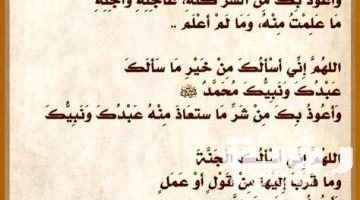 وَأَعُوذُ بِكَ مِنَ الشَّرِّ كُلِّهِ، عَاجِلِهِ وَآجِلِهِ
مَا عَلِمْتُ مِنْهُ، وَمَا لَمْ أَعْلَم ..
اللهُمَّ إِنِّي أَسْأَلُكَ مِنْ خَيْرِ مَا سَأَلَكَ
عَبْدُكَ وَنَبِيُّكَ مُحَمَّدُ ﷺ
وَأَعُوذُ بِكَ مِنْ شَرِّ مَا ستعَاذَ مِنْهُ عَبْدُكَ وَنَبِيُّكَ
اللهُمَّ إِنِّي أَسْأَلُكَ الْجَنَّةَ
وما قَرَّبَ إِلَيْهَا مِنْ قَوْلٍ أَوْ عَمَلٍ